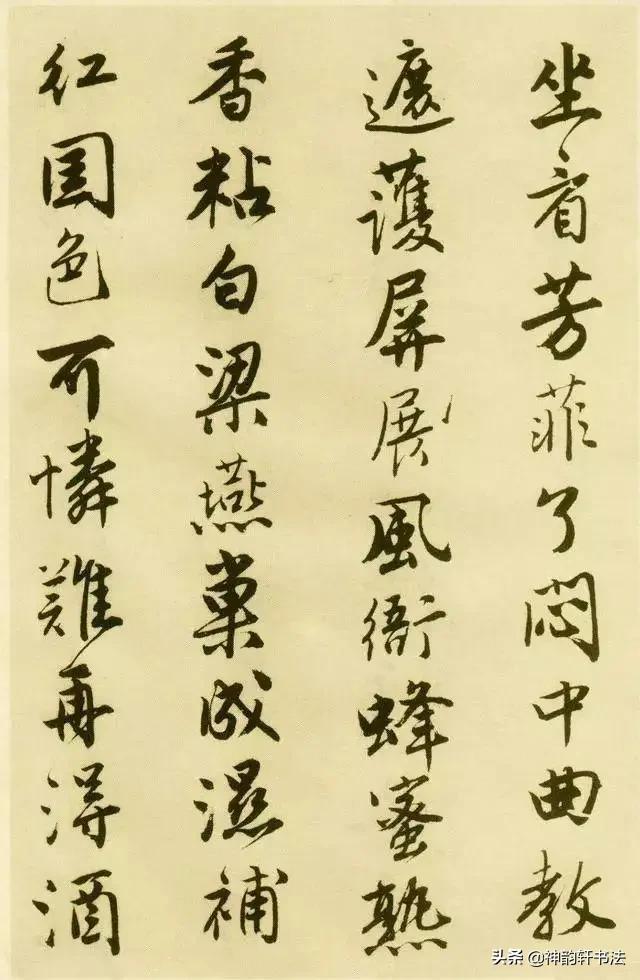 坐看芳菲了悶中曲教
遮護屏展風衙蜂蜜熟
香粘白梁燕巢成濕補
紅国色可憐難再得酒
头条 @神韵轩书法